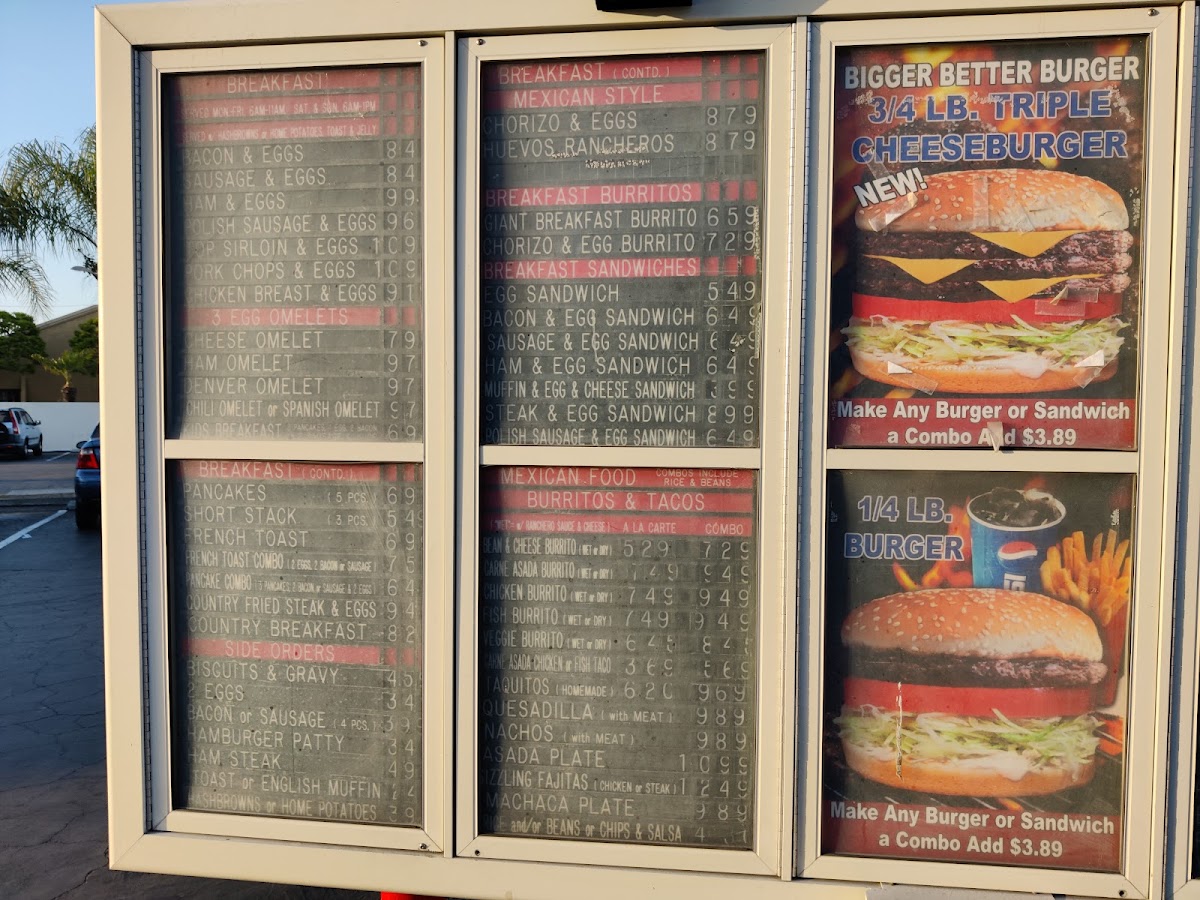 BREAKFAST
MON-FRI 6AM-11AM, SAT & SUN. 6AM-1PM
w/ HASHBROWNS or HOME POTATOES TOAST & JELLY
BACON & EGGS 84
SAUSAGE & EGGS 84
HAM & EGGS 99
POLISH SAUSAGE & EGGS 96
SIRLOIN & EGGS 109
PORK CHOPS & EGGS 109
CHICKEN BREAST & EGGS 9
3 EGG OMELETS
CHEESE OMELET 79
HAM OMELET 97
DENVER OMELET 97
CHILI OMELET or SPANISH OMELET 97
BREAKFAST 69
BREAKFAST (CONTD.)
PANCAKES (5 PCS.) 69
SHORT STACK (3 PCS.) 54
FRENCH TOAST 69
FRENCH TOAST COMBO (2 EGGS, 2 BACON or SAUSAGE) 75
PANCAKE COMBO 64
COUNTRY FRIED STEAK & EGGS 94
COUNTRY BREAKFAST 82
SIDE ORDERS
BISCUITS & GRAVY 45
2 EGGS 34
BACON or SAUSAGE (4 PCS.) 39
HAMBURGER PATTY 34
HAM STEAK 49
TOAST or ENGLISH MUFFIN 24
HASHBROWNS or HOME POTATOES 39
BREAKFAST (CONTD.)
MEXICAN STYLE
CHORIZO & EGGS 879
HUEVOS RANCHEROS 879
BREAKFAST BURRITOS
GIANT BREAKFAST BURRITO 659
CHORIZO & EGG BURRITO 729
BREAKFAST SANDWICHES
EGG SANDWICH 549
BACON & EGG SANDWICH 649
SAUSAGE & EGG SANDWICH 649
HAM & EGG SANDWICH 649
MUFFIN & EGG & CHEESE SANDWICH 399
STEAK & EGG SANDWICH 899
POLISH SAUSAGE & EGG SANDWICH 649
MEXICAN FOOD COMBOS INCLUDE RICE & BEANS
BURRITOS & TACOS
("WET"= w/ RANCHERO SAUCE & CHEESE) A LA CARTE COMBO
BEAN & CHEESE BURRITO (WET or DRY) 529 729
CARNE ASADA BURRITO (WET or DRY) 749 949
CHICKEN BURRITO (WET or DRY) 749 949
FISH BURRITO (WET or DRY) 749 949
VEGGIE BURRITO (WET or DRY) 645 845
CARNE ASADA CHICKEN or FISH TACO 369 569
TAQUITOS (HOMEMADE) 620 969
QUESADILLA (with MEAT) 989
NACHOS (with MEAT) 989
ASADA PLATE 1099
SIZZLING FAJITAS (CHICKEN or STEAK) 1249
MACHACA PLATE 989
and/or BEANS or CHIPS & SALSA 4
BIGGER BETTER BURGER
3/4 LB. TRIPLE
CHEESEBURGER
NEW!
Make Any Burger or Sandwich
a Combo Add $3.89
1/4 LB.
BURGER
Make Any Burger or Sandwich
a Combo Add $3.89